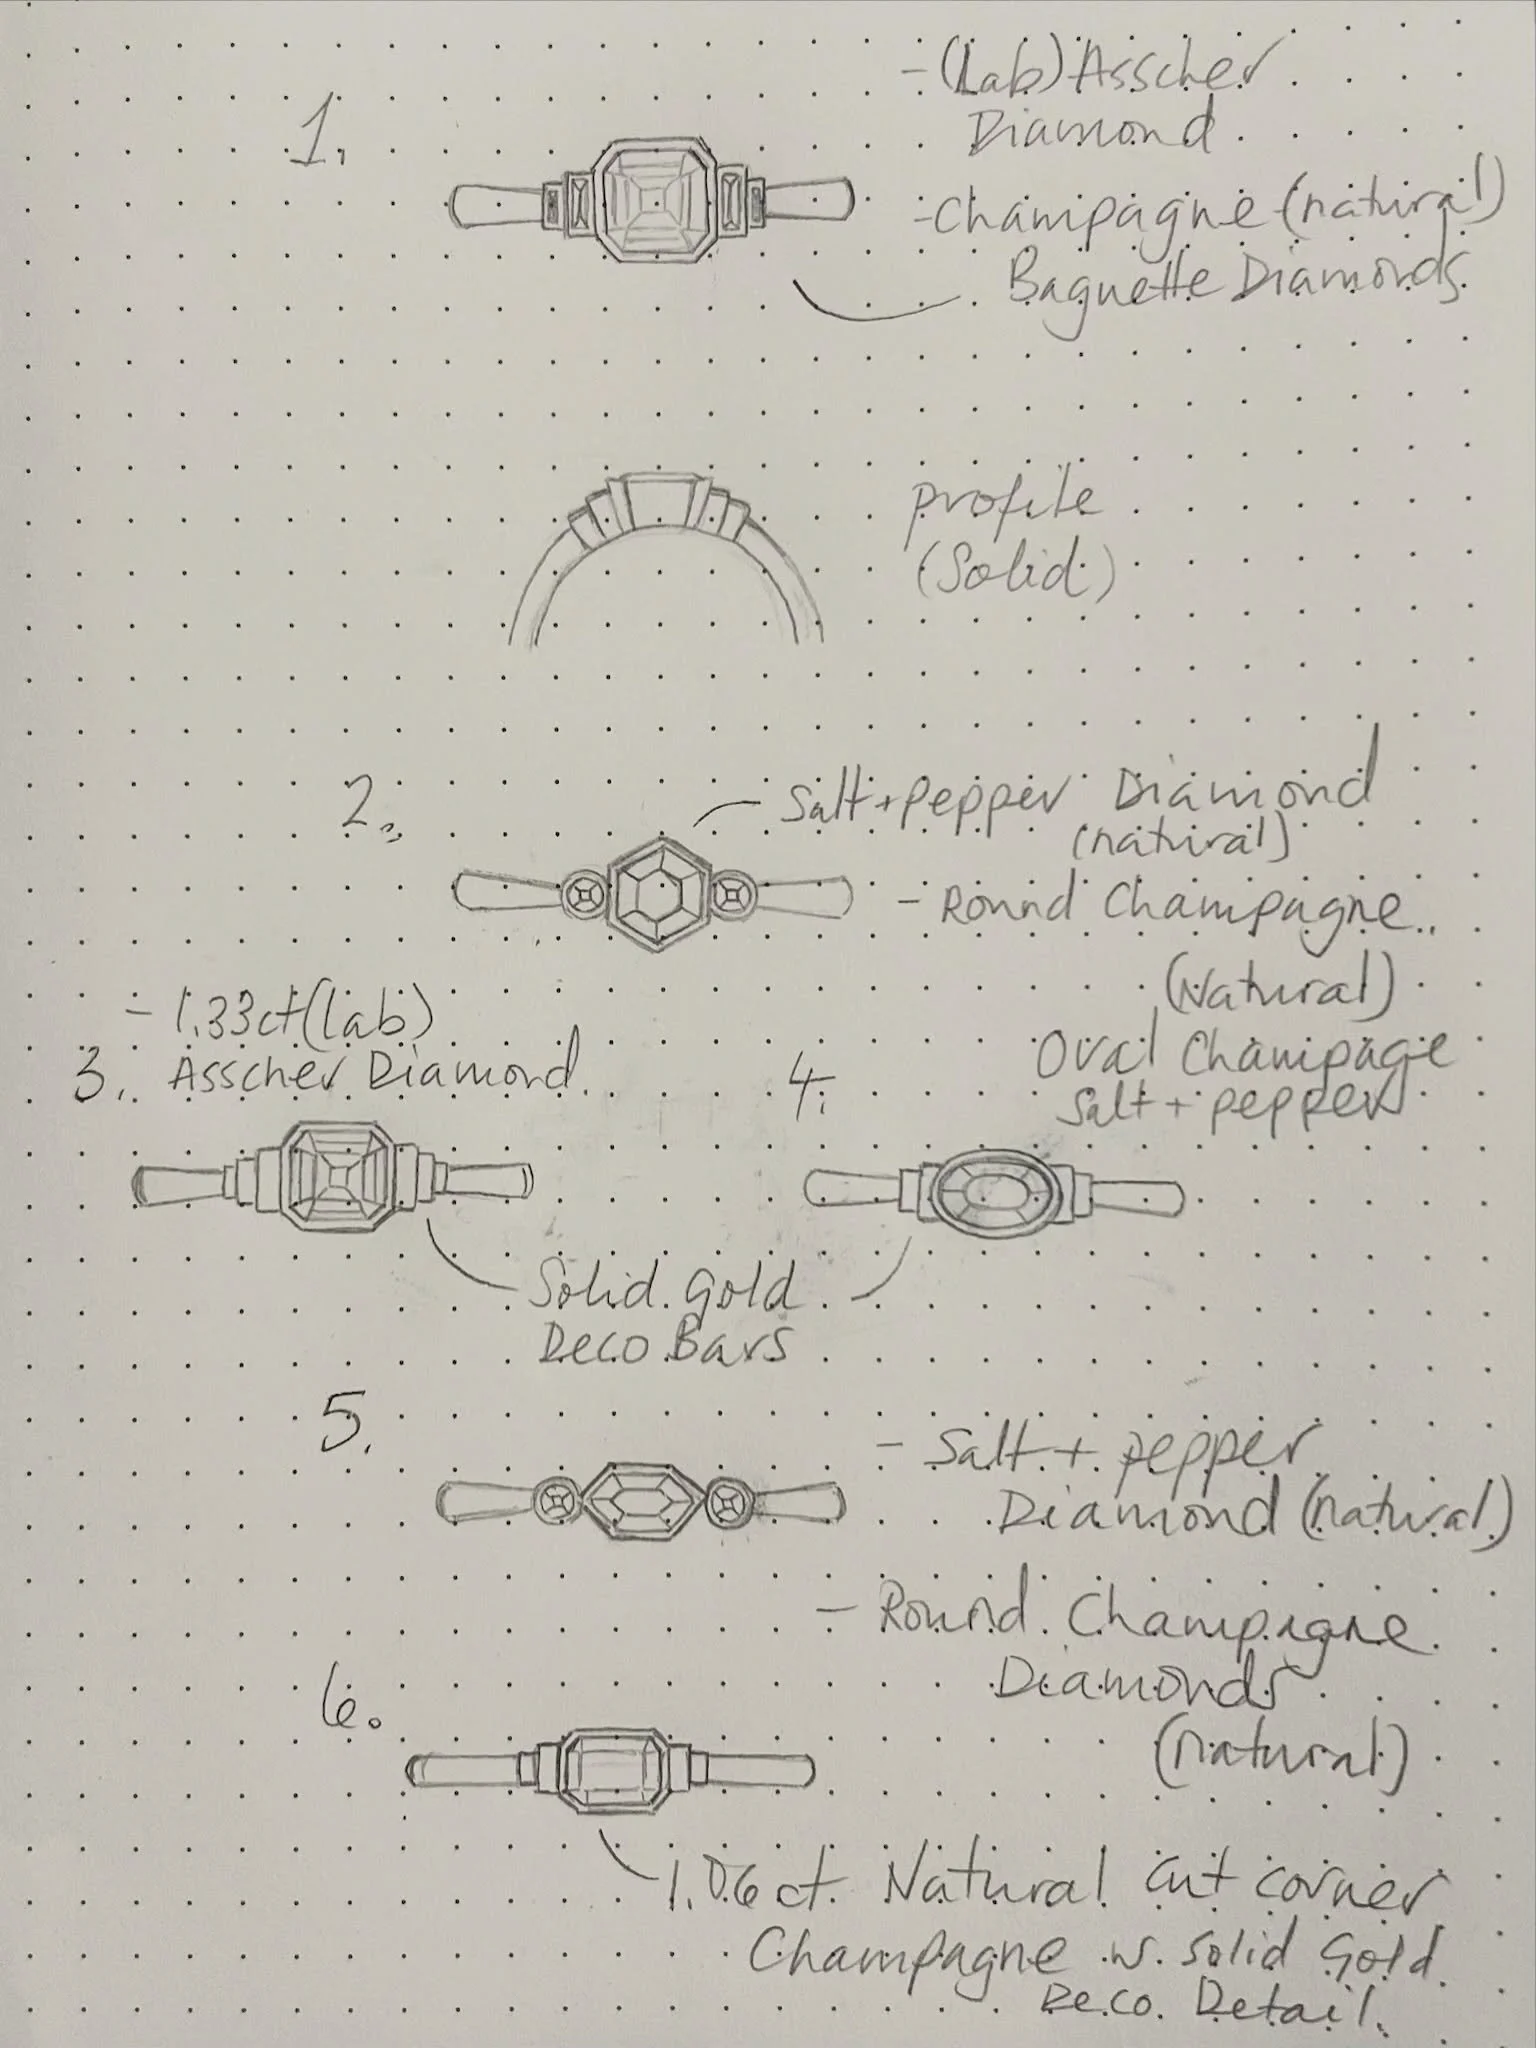 1.
- (Lab) Asscher
Diamond
- Champagne (natural)
Baguette Diamonds
profile
(Solid)
2.
Salt + pepper Diamond
(natural)
- Round Champagne
(Natural)
- 1.33ct (lab)
3. Asscher Diamond
4.
Oval Champage
Salt + pepper
Solid Gold
Deco Bars
5.
- Salt + pepper
Diamond (natural)
- Round Champagne
Diamonds
(natural)
6.
1.06ct Natural cut corner
Champagne w. Solid Gold
Deco Detail.